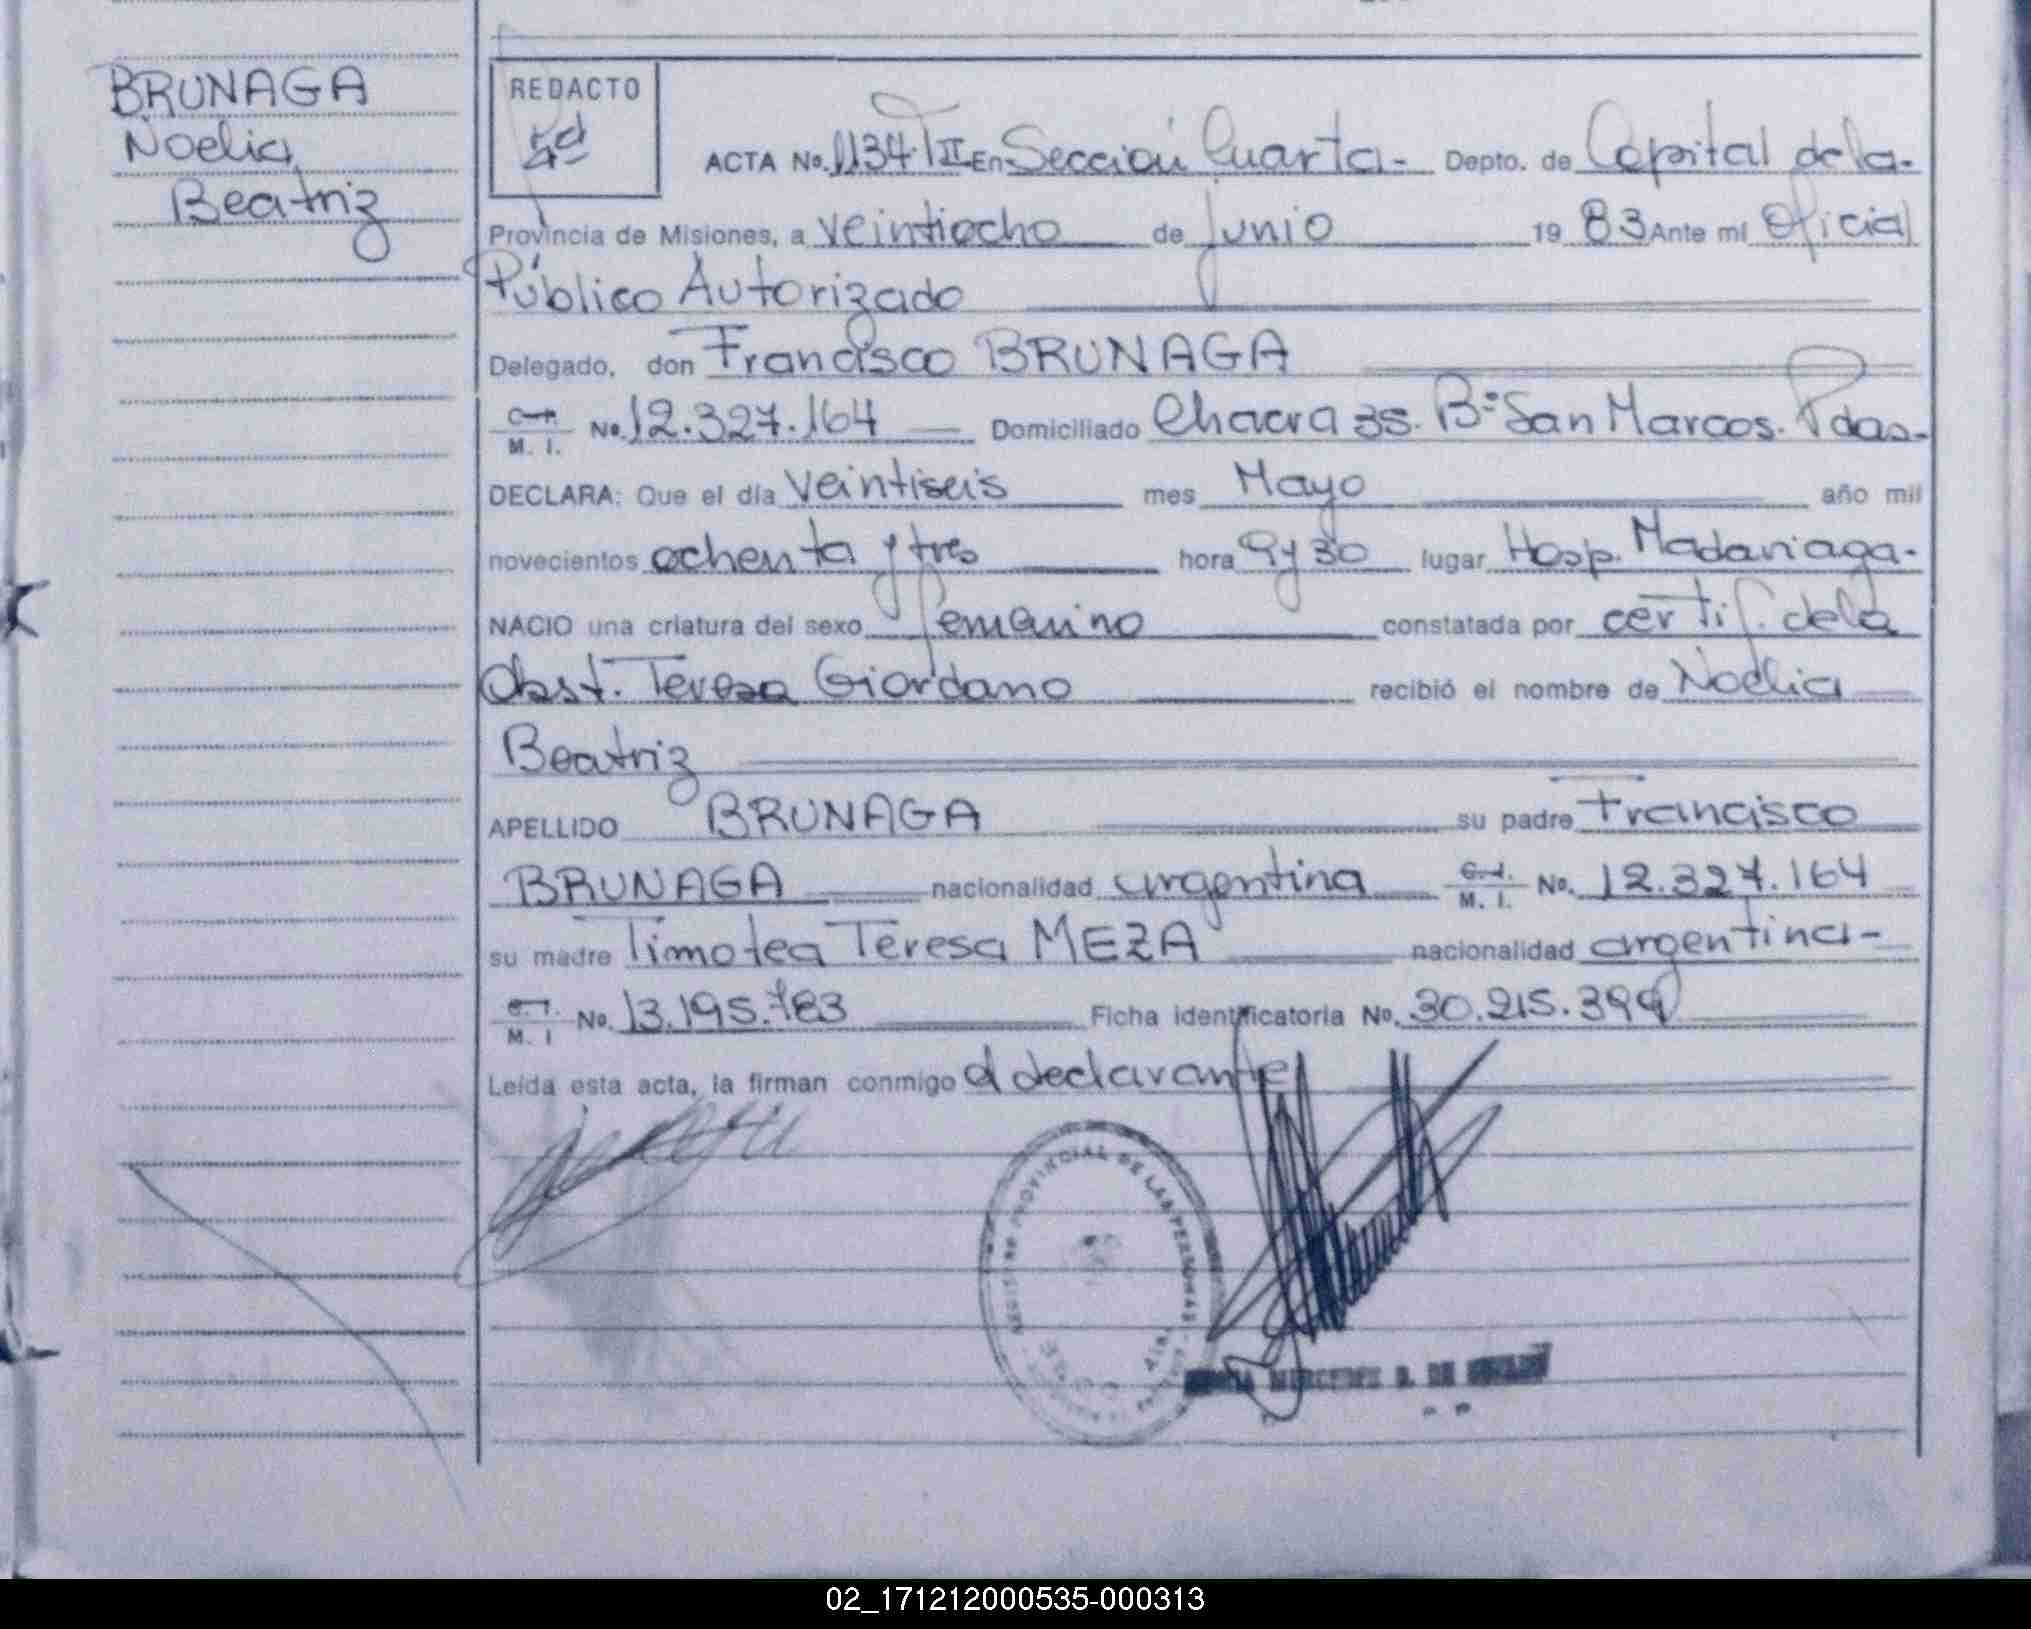 BRUNAGA
Noelia
Beatriz
REDACTO
ACTA No. 1134.TII En Sección Cuarta- Depto. de Capital de la-
Provincia de Misiones, a veintiocho de junio 19 83 Ante mí Oficial
Público Autorizado
Delegado, don Francisco BRUNAGA
C. I.
M. I. No. 12.327.164 Domiciliado Chacra 35. Bº San Marcos. Pdas-
DECLARA: Que el día veintiseis mes Mayo año mil
novecientos ochenta y tres hora 9 y 30 lugar Hosp. Madariaga-
NACIO una criatura del sexo femenino constatada por certif. de la
Obst. Teresa Giordano recibió el nombre de Noelia
Beatriz
APELLIDO BRUNAGA su padre Francisco
BRUNAGA nacionalidad argentina C. I.
M. I. No. 12.327.164
su madre Timotea Teresa MEZA nacionalidad argentina-
C. I.
M. I No. 13.195.783 Ficha identificatoria No. 30.215.399
Leída esta acta, la firman conmigo el declarante
REGISTRO PROVINCIAL DE LAS PERSONAS
MERCEDES D. DE
02_171212000535-000313